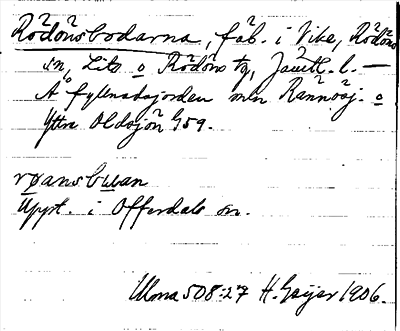 Rödönsbodarna, fäb. i Vike, Rödöns
sn, Lits o Rödöns tg, Jämtl. l. —
Å fyllnadsjorden mln Rannåsj. o
Yttre Oldsjön G59.
røansbuan
Uppt. i Offerdals sn.
Ulma 508:27 H. Geijer 1906.